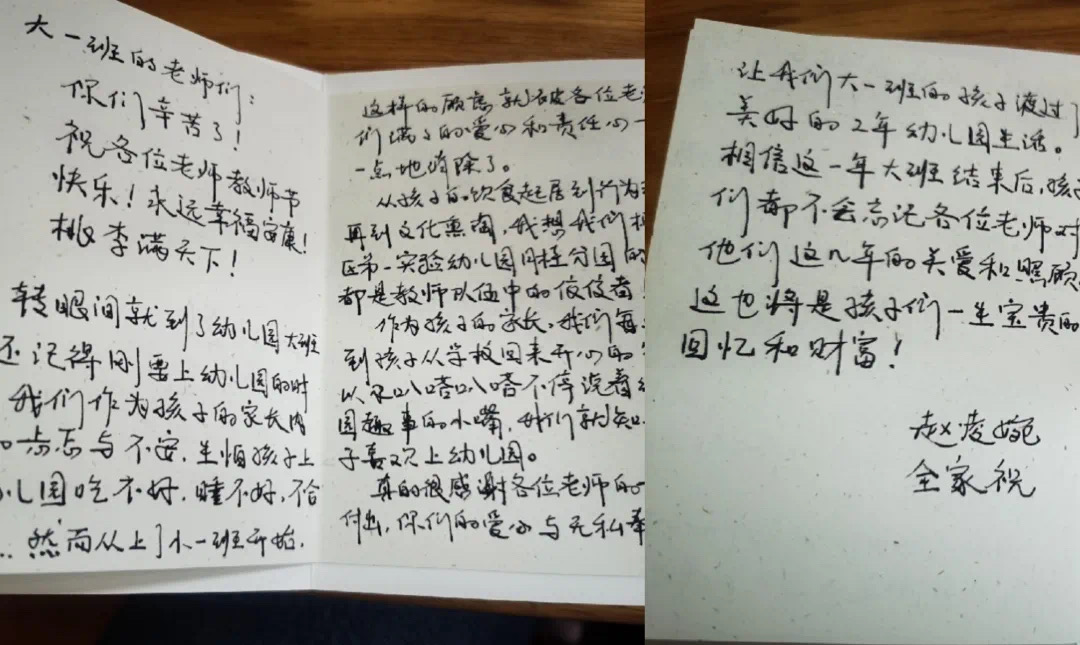 大一班的老师们:
你们辛苦了!
祝各位老师教师节
快乐!永远幸福安康!
桃李满天下!
转眼间就到了幼儿园大班
还记得刚要上幼儿园的时
我们作为孩子的家长内
忐忑与不安,生怕孩子上
儿园吃不好,睡不好,不合
然而从上了小一班开始,
这样的顾虑就被各位老
们满了的爱心和责任心一
一点地消除了。
从孩子的饮食起居到行为
再到文化熏陶,我想我们
区第一实验幼儿园月桂分园的
都是教师队伍中的佼佼者
作为孩子的家长,我们每
到孩子从学校回来开心的
以及叭嗒叭嗒不停说着
园趣事的小嘴,我们就知
子喜欢上幼儿园。
真的很感谢各位老师的
付出,你们的爱心与无私奉
让我们大一班的孩子渡过了
美好的2年幼儿园生活。
相信这一年大班结束后,孩子
们都不会忘记各位老师对
他们这几年的关爱和照顾
这也将是孩子们一生宝贵的
回忆和财富!
赵凌婉
全家祝